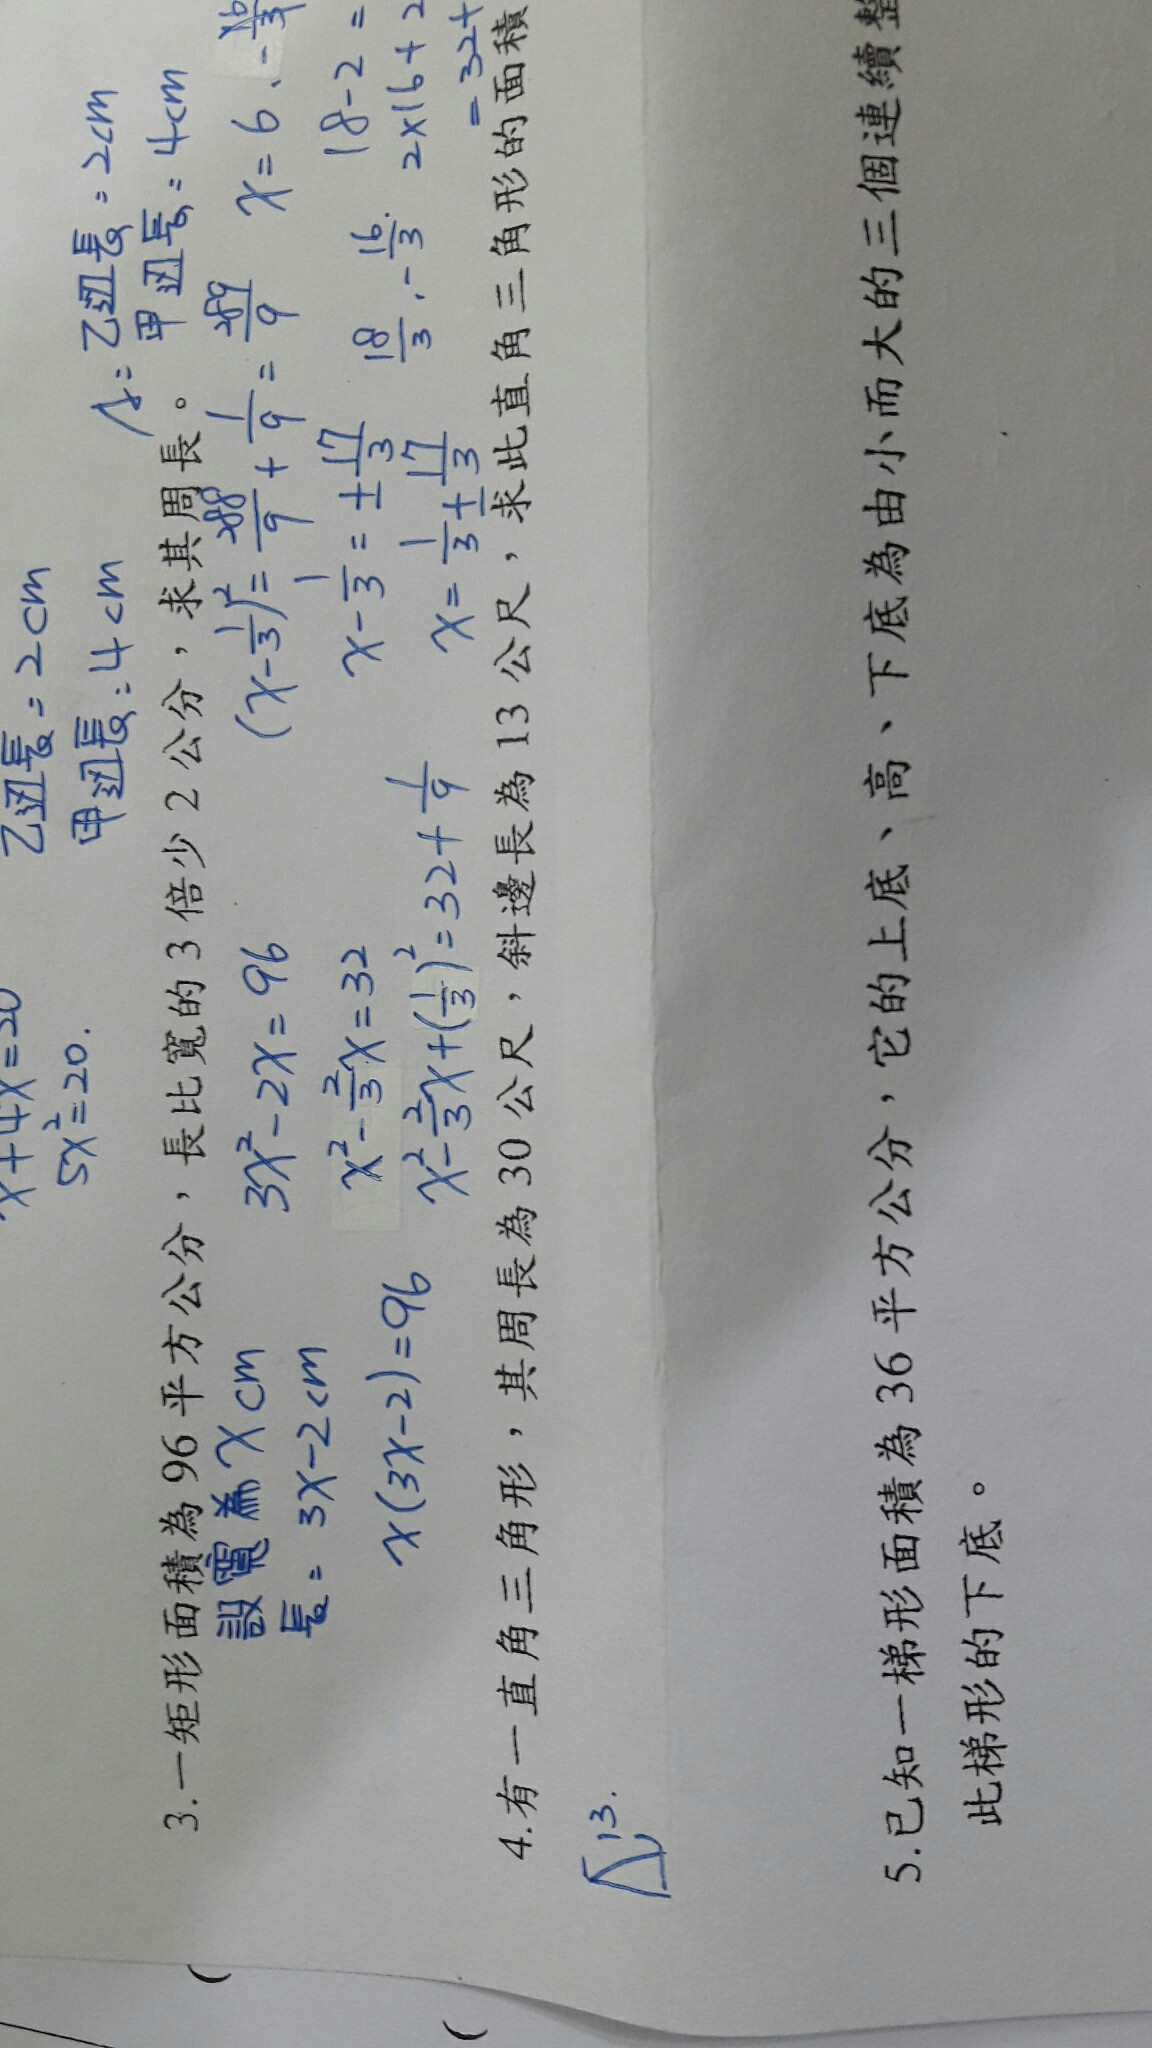 x+4x=20
5x²=20.
乙邊長=2cm
甲邊長=4cm
A:乙邊長=2cm
甲邊長=4cm
3.一矩形面積為96平方公分，長比寬的3倍少2公分，求其周長。
設寬為xcm
長=3x-2cm
x(3x-2)=96
3x²-2x=96
x²-2/3x=32
x²-2/3x+(1/3)²=32+1/9
(x-1/3)²=288/9+1/9=289/9
x-1/3=±17/3
x=1/3±17/3
18/3,-16/3
x=6,-16/3
18-2=
2x16+2
=32+
4.有一直角三角形，其周長為30公尺，斜邊長為13公尺，求此直角三角形的面積
13.
5.已知一梯形面積為36平方公分，它的上底、高、下底為由小而大的三個連續整
此梯形的下底。